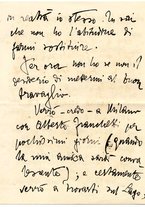 in realtà io stesso. Tu sai
che non ho l'abitudine di
farmi sostituire.
Per ora non ho se non il
pensiero di mettermi al buon
travaglio.
Verrò - credo - a Milano
con Alberto Franchetti per
pochissimi giorni (quando
la mia amica sarà conva
; e certamente
verrò a trovarti sul Lago,